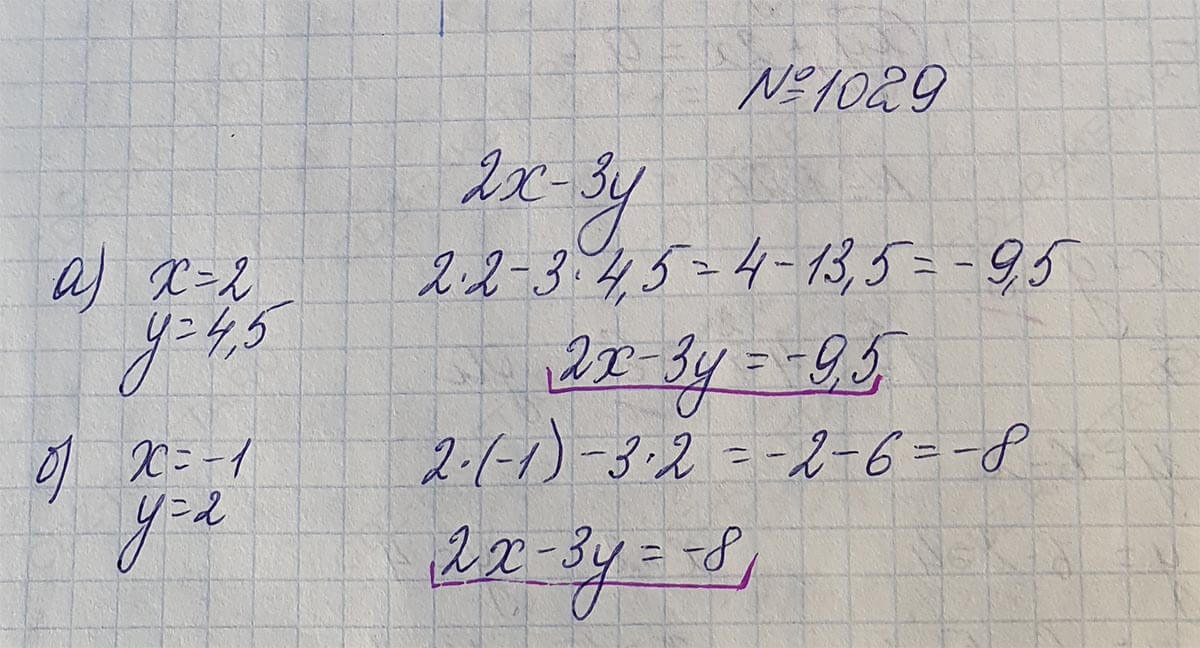 №1029
2x-3y
а) x=2 2·2-3·4,5=4-13,5=-9,5
y=4,5
2x-3y=-9,5
б) x=-1 2·(-1)-3·2=-2-6=-8
y=2
2x-3y=-8